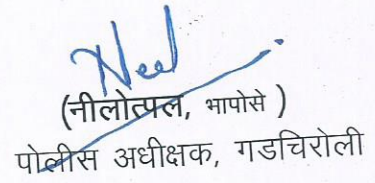 Neel
(नीलोत्पल, भापोसे )
पोलीस अधीक्षक, गडचिरोली